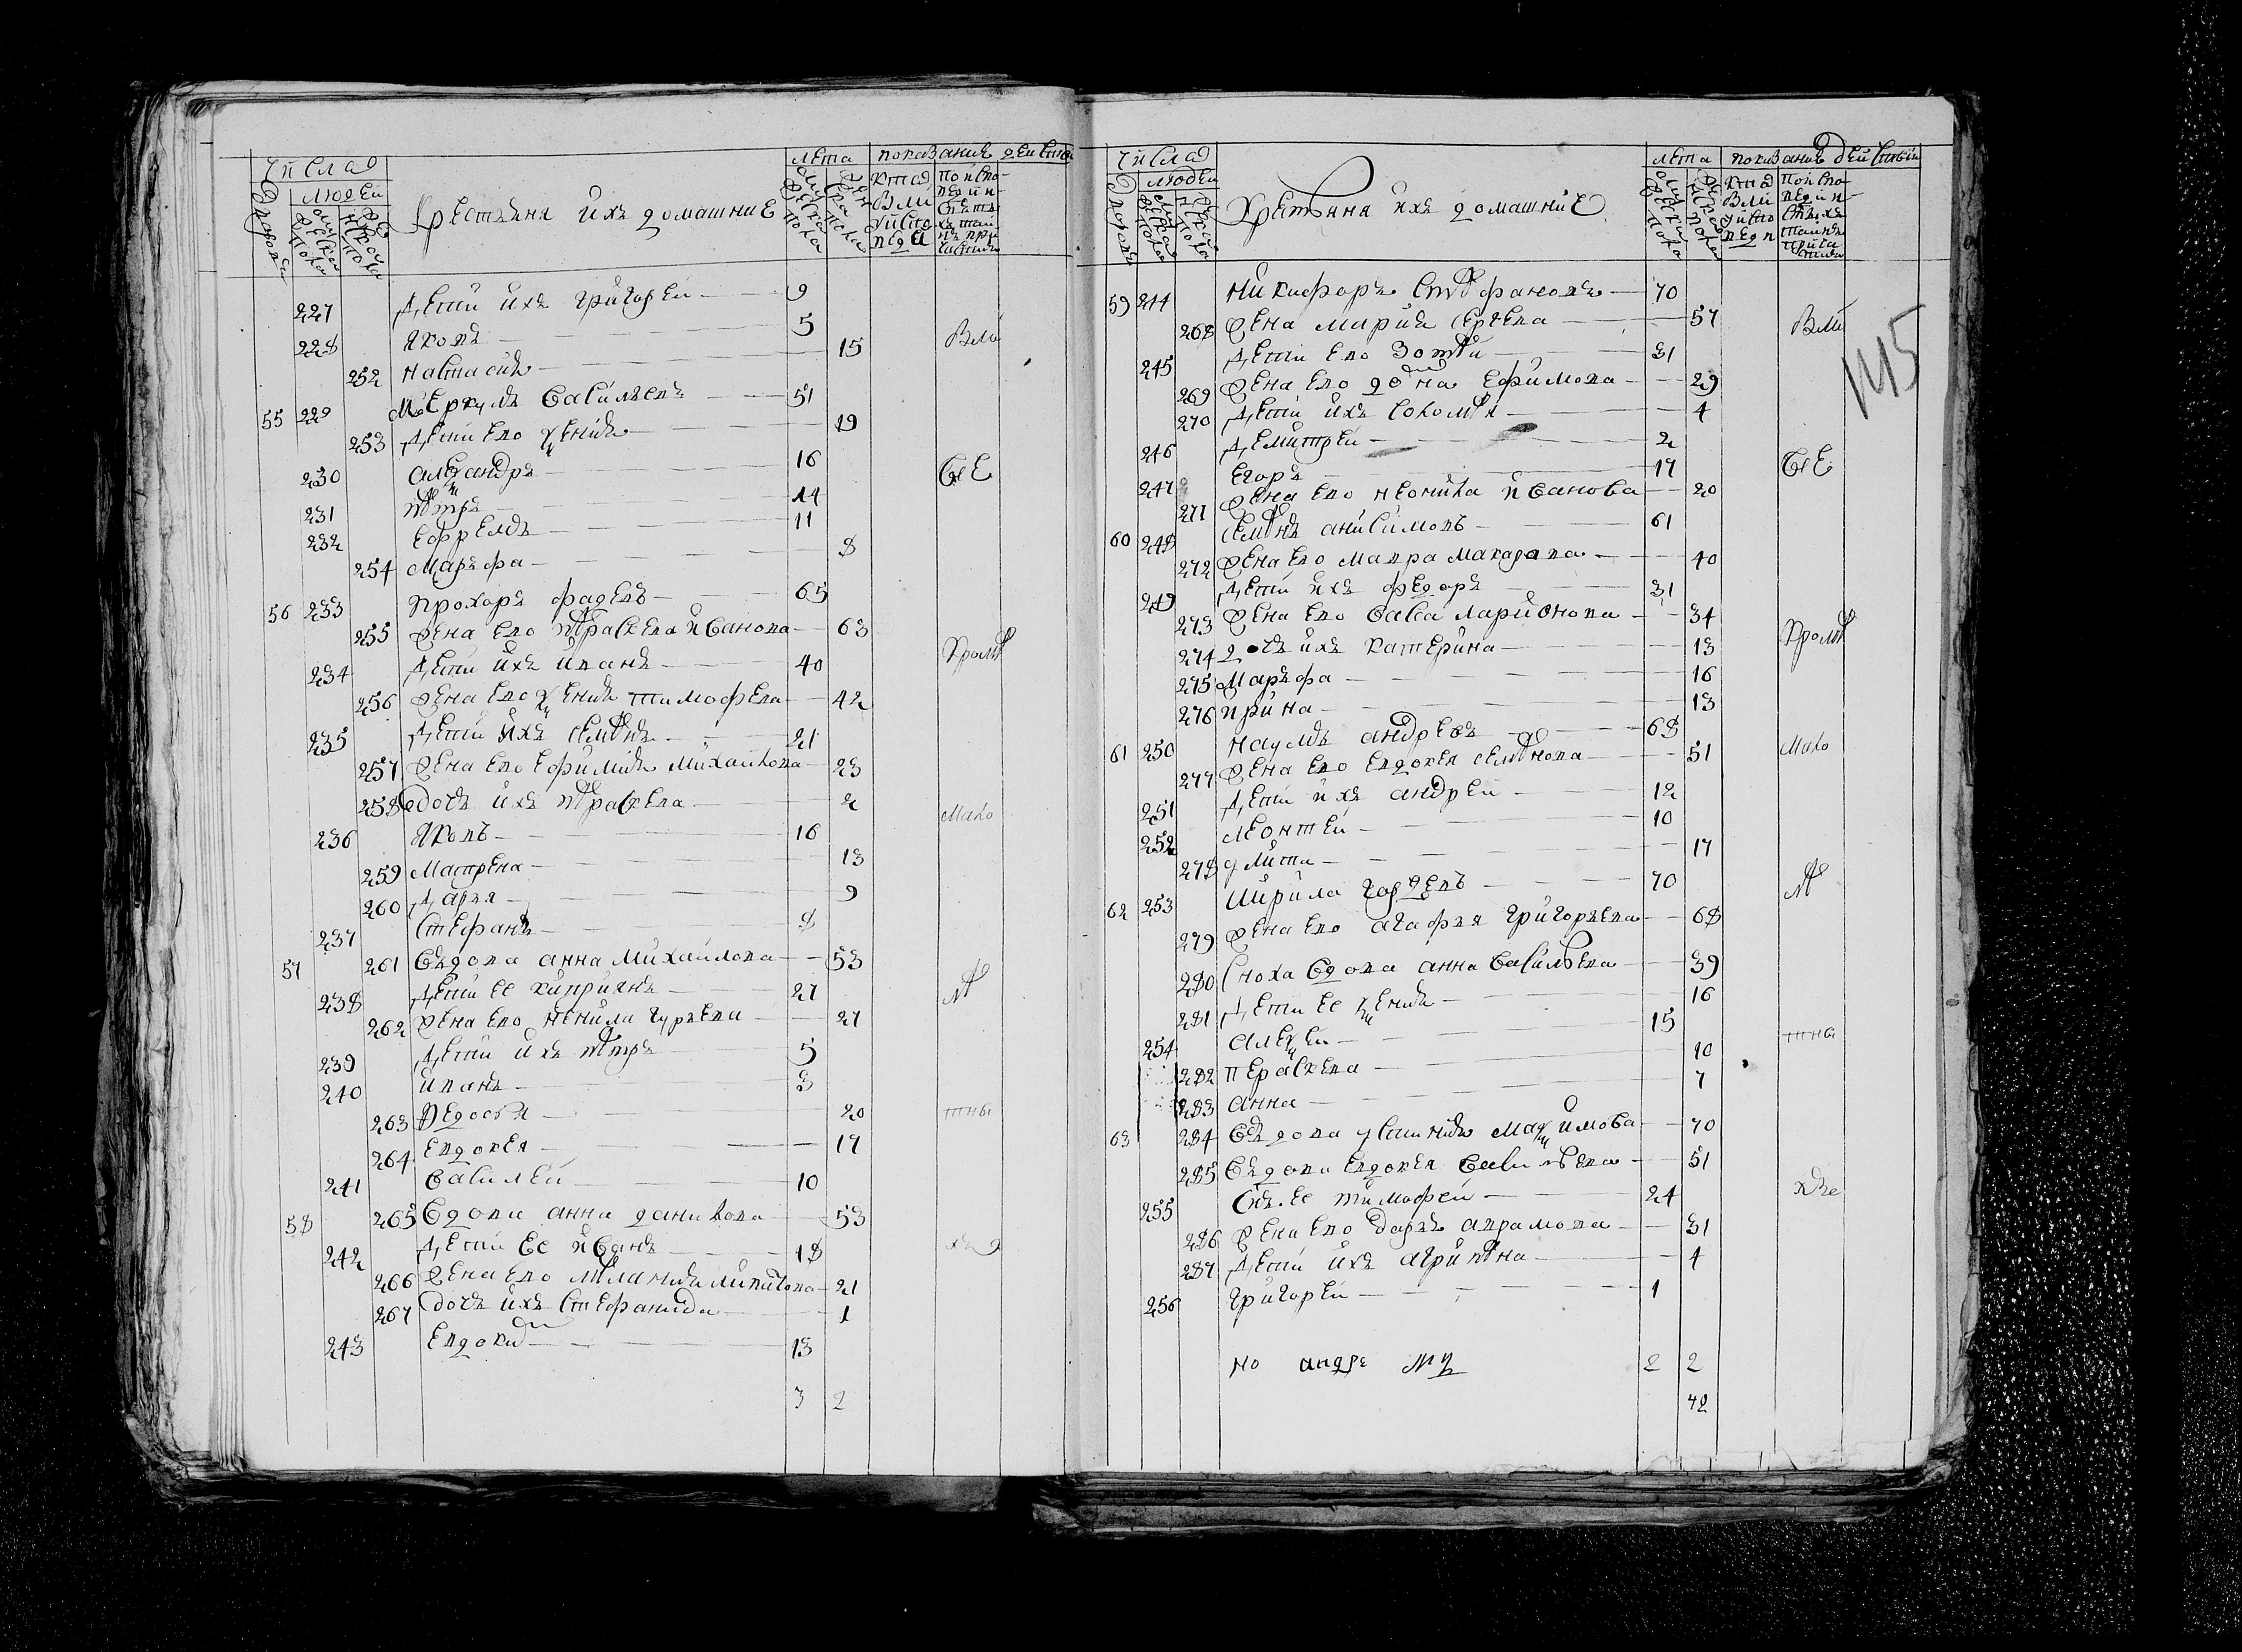 числа лета показание действа
людей
Крестьяня ихъ домашние
227 дети ихъ григорей 9
228 яковъ 5
252 настасия 15
55 229 меркулъ васильевъ 51
253 дети ево ксения 19
230 александръ 16
231 петръ 14
232 ефремъ 11
254 марфа 8
56 233 прохоръ фадеевъ 65
255 жена ево прасковя иванова 63
234 дети ихъ иванъ 40
256 жена ево ксения тимофева 42
235 дети ихъ семенъ 21
257 жена ево ефимия михайлова 23
258 дочь ихъ прасковя 2
236 яковъ 16
259 матрена 13
260 дарья 9
237 стефанъ 8
57 261 вдова анна михайлова 53
238 дети ее киприянъ 27
262 жена ево ненила гурьева 27
239 дети ихъ петръ 5
240 иванъ 3
263 федосья 20
264 евдокея 17
241 василей 10
58 265 вдова анна данилова 53
242 дети ее иванъ 18
266 жена ево мелания липатова 21
267 дочь ихъ стефанида 1
243 евдоким 13
3 2
Вели
сее
Кроме
мало
ле
тны
числа лета показание действии
людей
Крестьяня ихъ домашние
145
59 244 никифоръ стефановъ 70
268 жена мария сергева 57
245 дети ево зотей 31
269 жена ево домна ефимова 29
270 дети ихъ соломея 4
246 демитрей 2
247 егоръ 17
271 жена ево неонила иванова 20
60 248 семенъ анисимовъ 61
272 жена ево мавра макарова 40
249 дети ихъ федоръ 31
273 жена ево васса ларионова 34
274 дочь ихъ катерина 13
275 марфа 16
276 ирина 13
61 250 наумъ андревъ 68
277 жена ево евдокея семенова 51
251 дети ихъ андрей 12
252 леонтей 10
278 улита 17
62 253 кирила гордеевъ 70
279 жена ево агафья григорьева 68
280 сноха вдова анна васильева 39
281 дети ее ксения 16
254 алексей 15
282 перасковя 10
283 анна 7
63 284 вдова устиния максимова 70
285 вдова евдокея васильева 51
255 сынъ ее тимофей 24
286 жена ево дарья аврамова 31
287 дети ихъ агрипена 4
256 григорей 1
но андре 2 2
42
Вели
сее
Кроме
мало
ле
тны
хъ